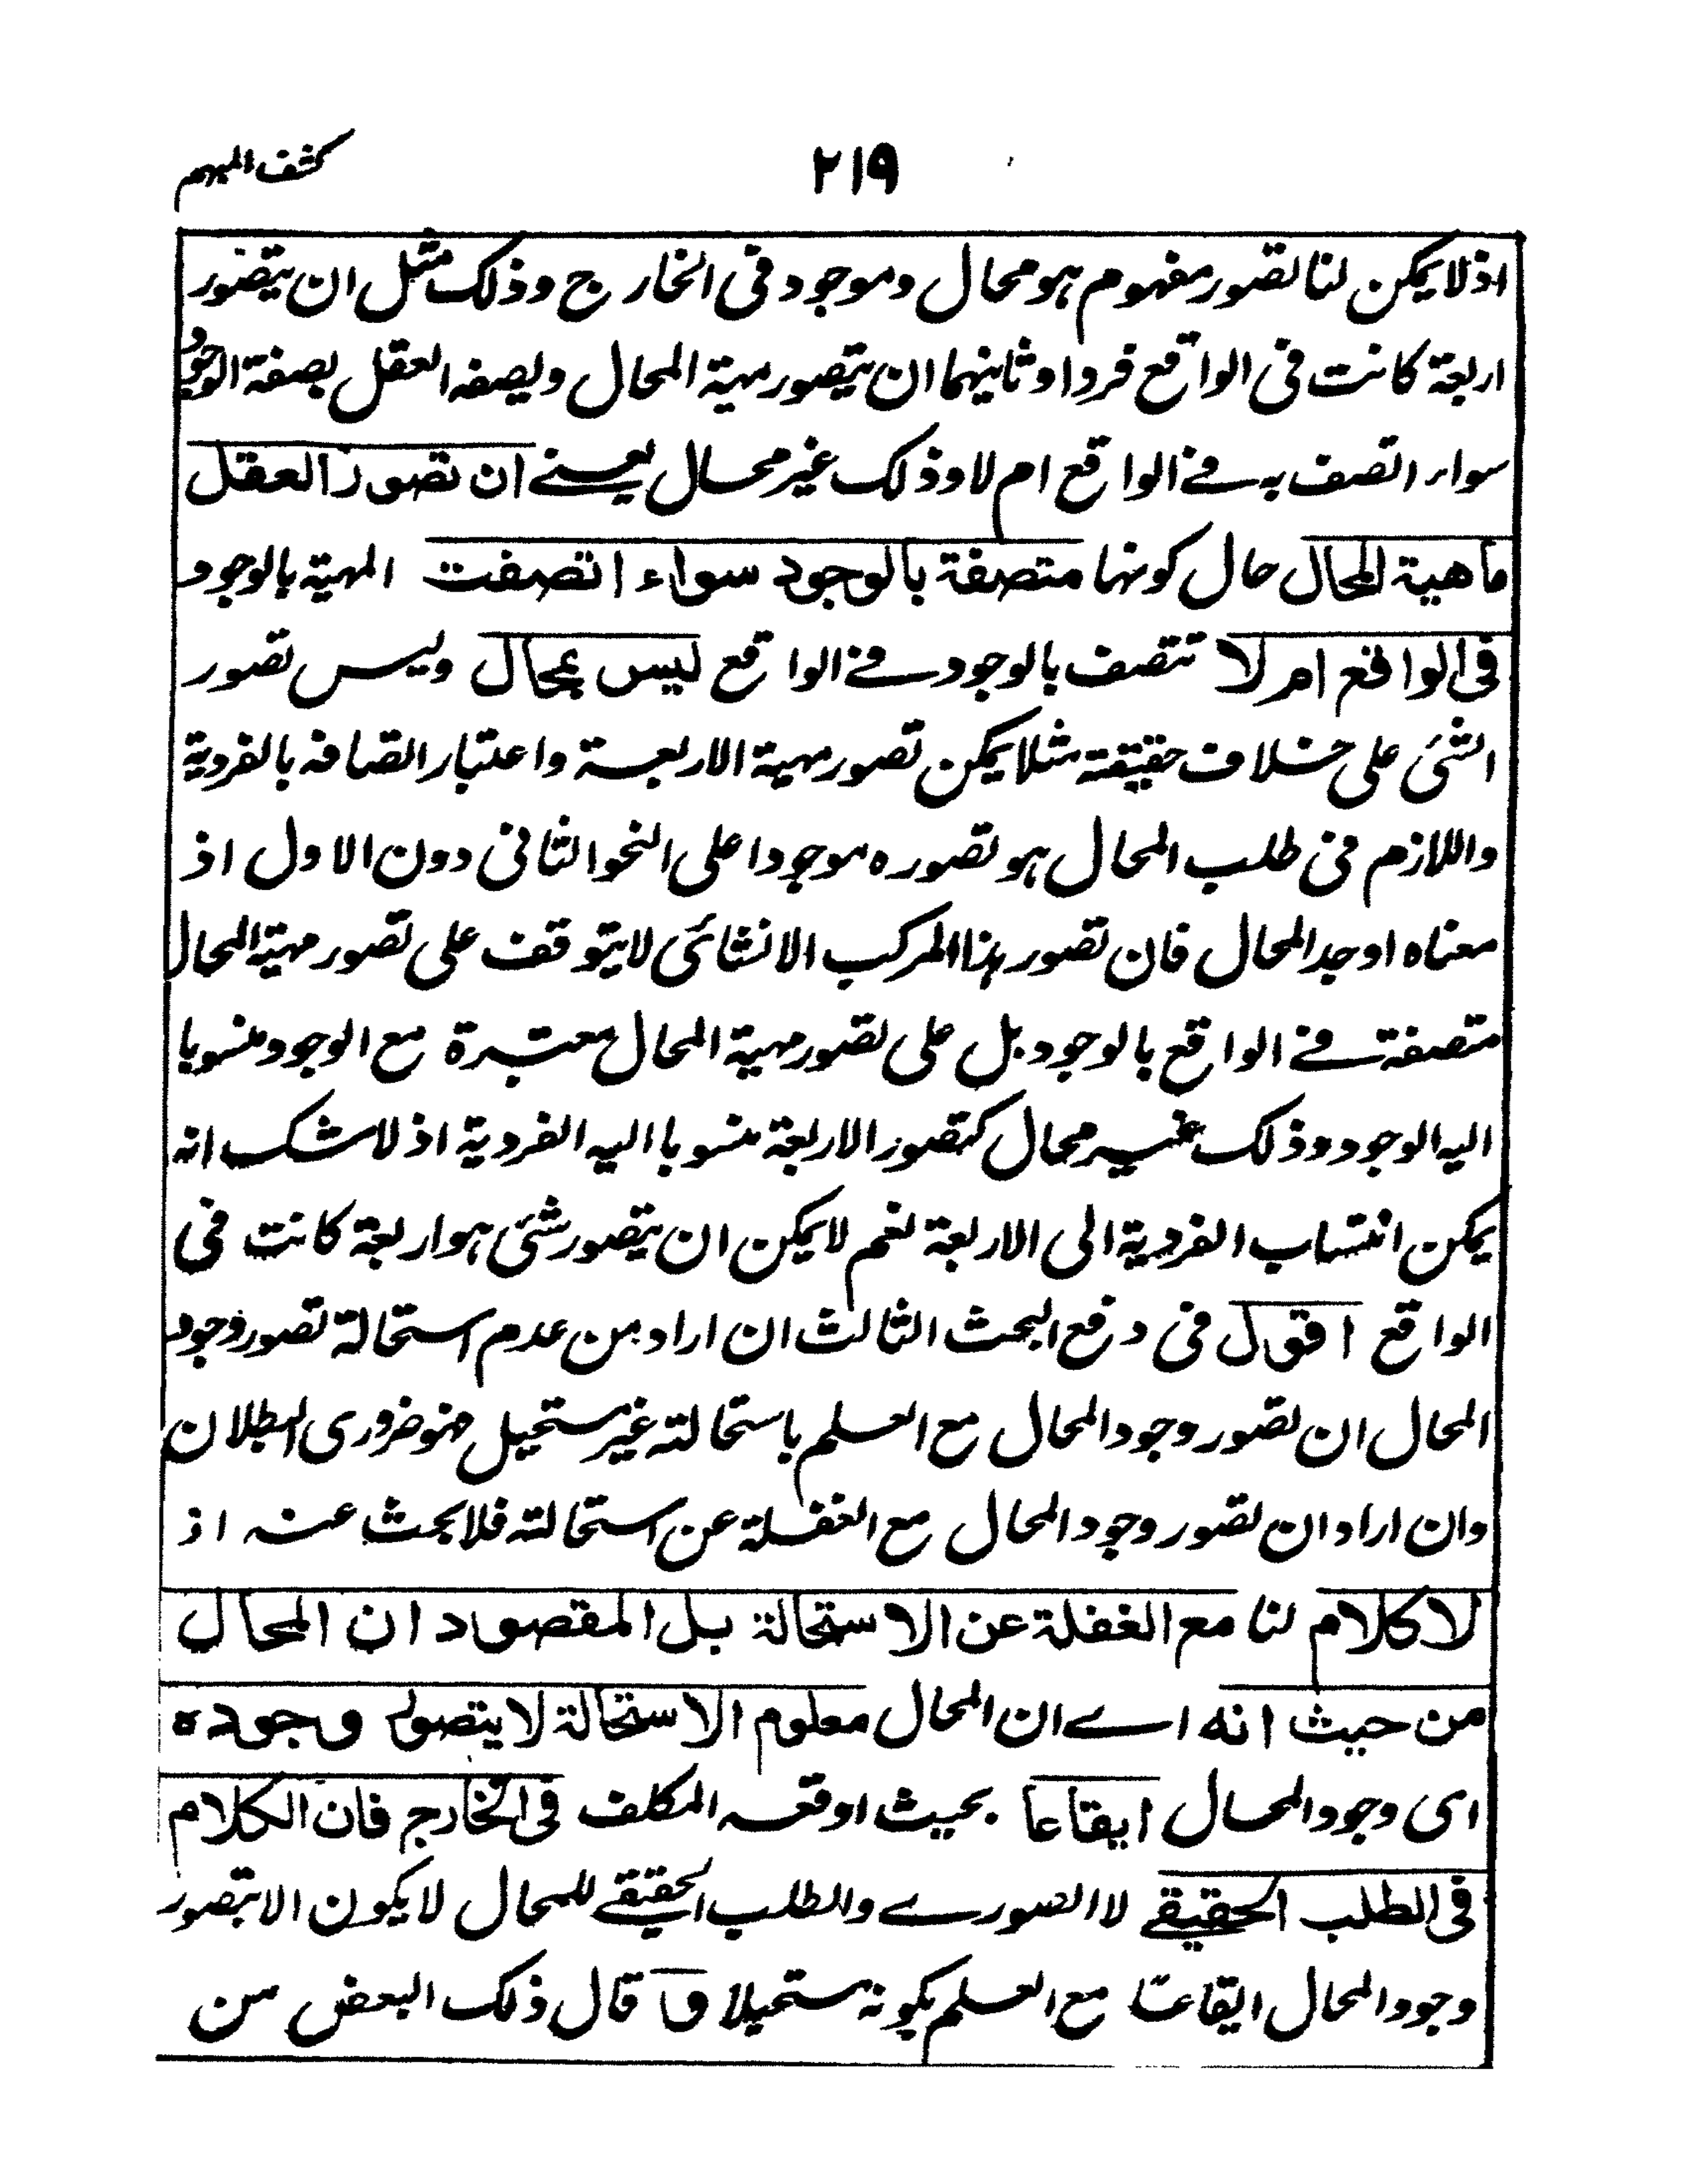 كشف المبهم
٢١٩
اذ لا يمكن لنا تصور مفهوم هو محال وموجود فى الخارج وذلك مثل ان يتصور
اربعة كانت فى الواقع فردا وثانيهما ان يتصور مهية المحال ويصفه العقل بصفة الوجود
سواء اتصف به فى الواقع ام لا وذلك غير محال يعنى ان تصور العقل
ماهية المحال حال كونها متصفة بالوجود سواء اتصفت المهية بالوجود
فى الواقع ام لا تتصف بالوجود فى الواقع ليس بمحال وليس تصور
الشئ على خلاف حقيقته مثلا يمكن تصور مهية الاربعة واعتبار اتصافه بالفردية
واللازم فى طلب المحال هو تصوره موجودا على النحو الثانى دون الاول اذ
معناه اوجد المحال فان تصور هذا المركب الانشائى لا يتوقف على تصور مهية المحال
متصفة فى الواقع بالوجود بل على تصور مهية المحال معتبرة مع الوجود منسوبا
اليه الوجود وذلك غير محال كتصور الاربعة منسوبا اليه الفردية اذ لا شك انه
يمكن انتساب الفردية الى الاربعة نعم لا يمكن ان يتصور شئ هو اربعة كانت فى
الواقع اقول فى دفع البحث الثالث ان اراد من عدم استحالة تصور وجود
المحال ان تصور وجود المحال مع العلم باستحالته غير مستحيل فهو ضرورى البطلان
وان اراد ان تصور وجود المحال مع الغفلة عن استحالته فلا بحث عنه اذ
لا كلام لنا مع الغفلة عن الاستحالة بل المقصود ان المحال
من حيث انه اى ان المحال معلوم الاستحالة لا يتصور وجوده
اى وجود المحال ايقاعا بحيث اوقعه المكلف فى الخارج فان الكلام
فى الطلب الحقيقى لا الصورى والطلب الحقيقى للمحال لا يكون الا بتصور
وجود المحال ايقاعا مع العلم بكونه مستحيلا وما قال ذلك البعض من